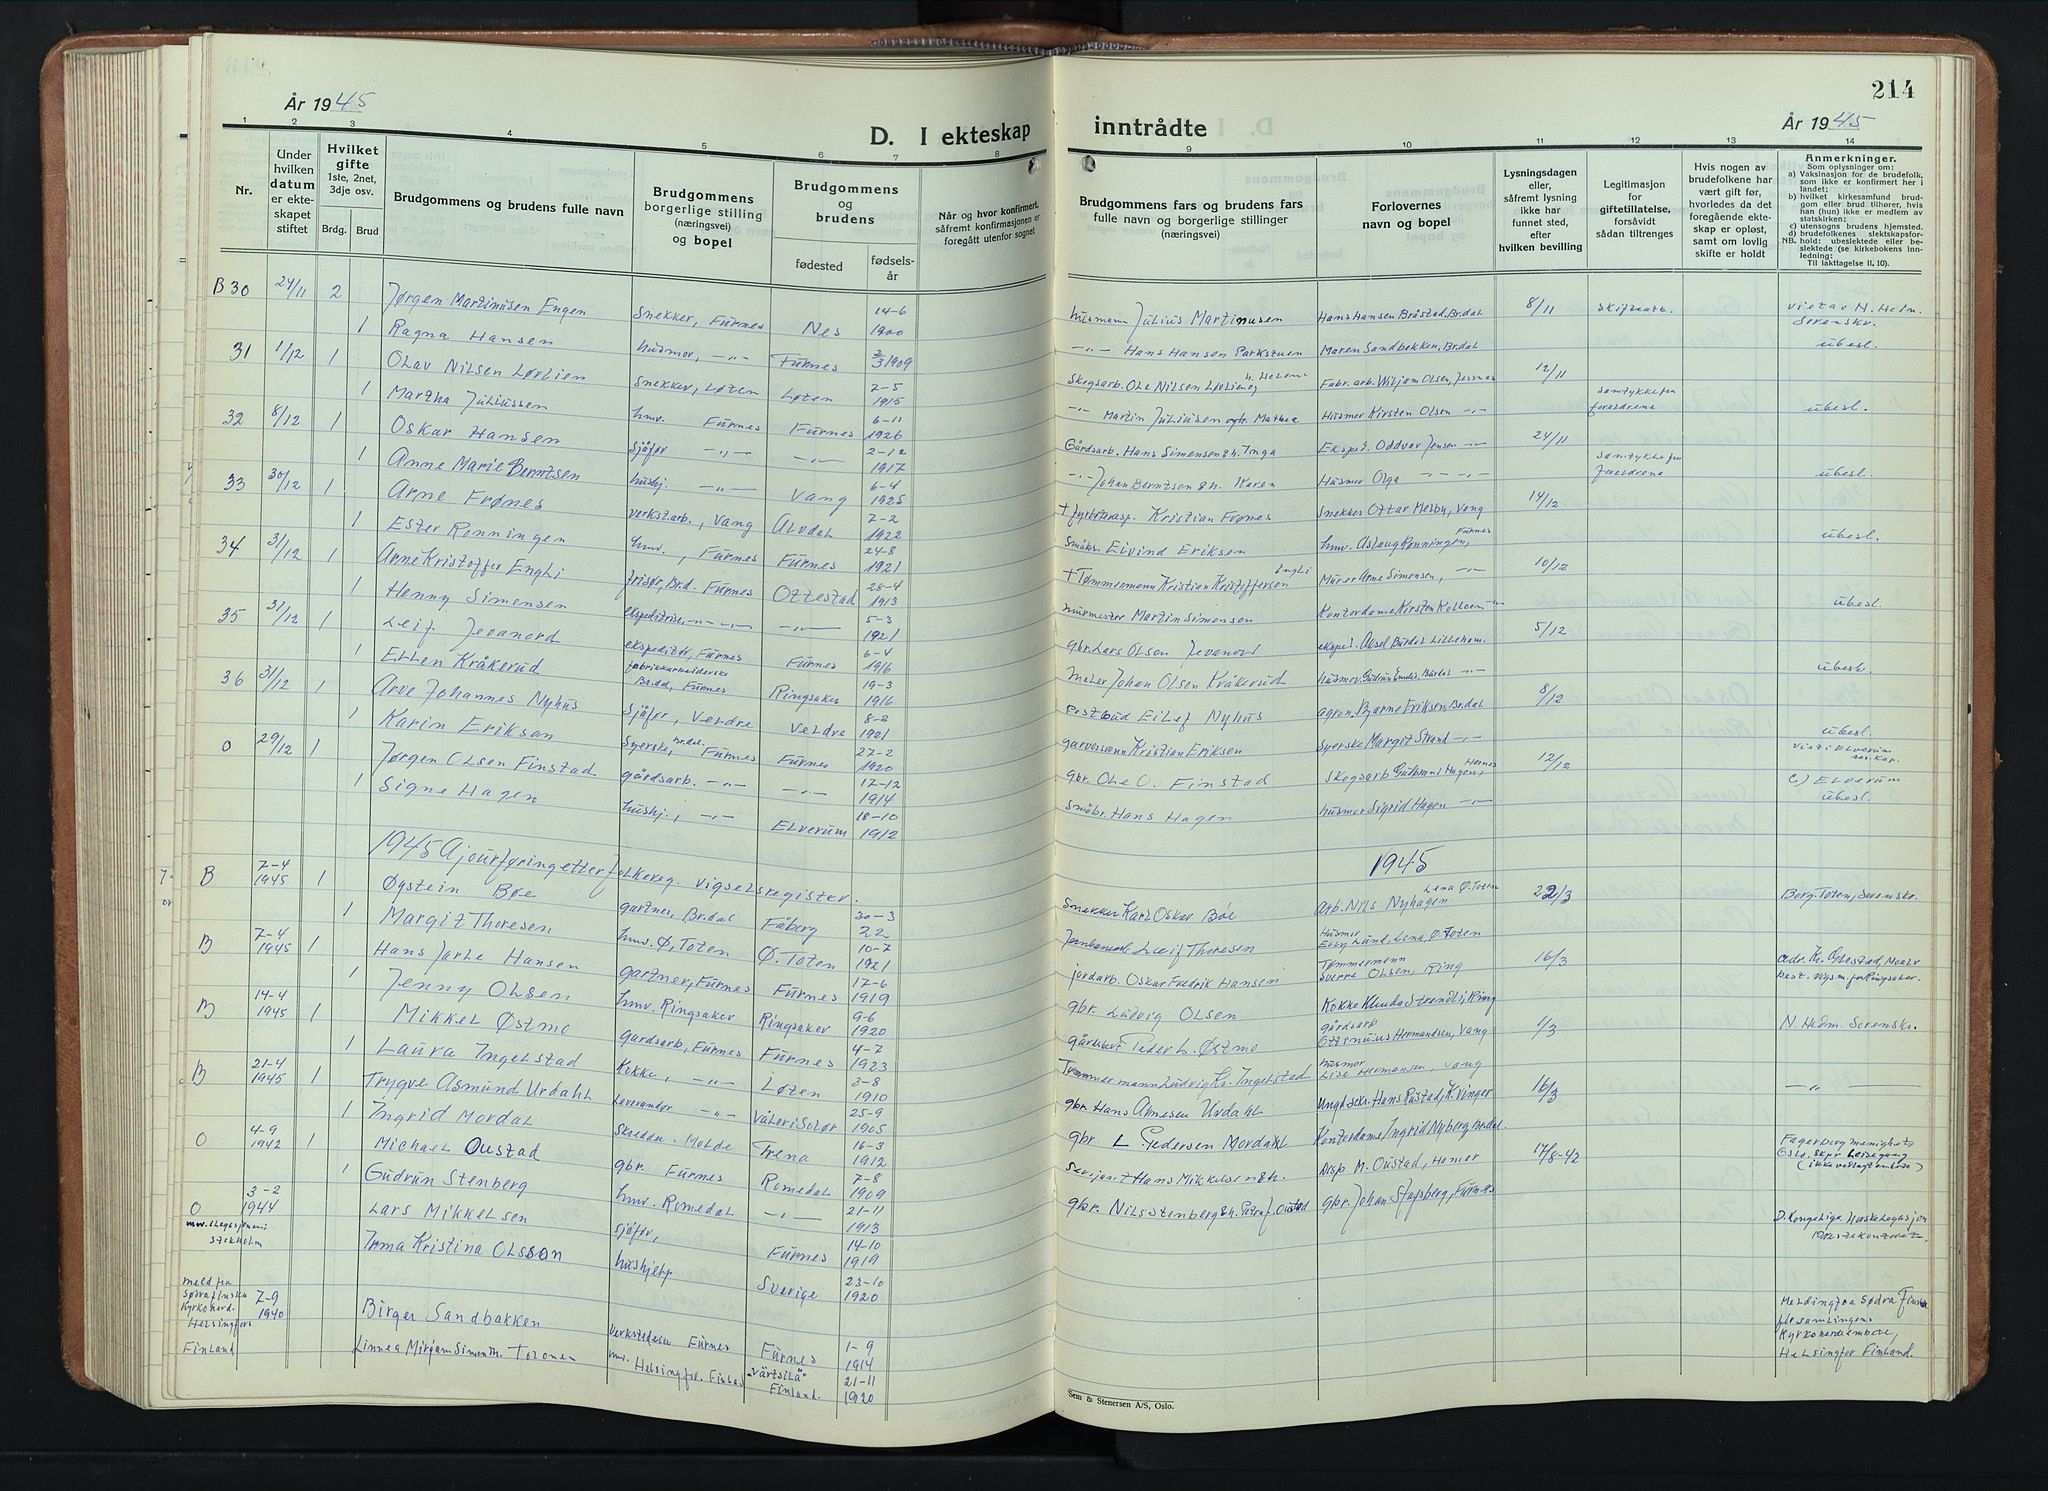 År 1945
D. I ekteskap
1 2 3 4 5 6 7 8
Nr.
Under hvilken datum er ekteskapet stiftet
Hvilket gifte
1ste, 2net, 3dje osv.
Brdg. Brud
Brudgommens og brudens fulle navn
Brudgommens borgerlige stilling (næringsvei) og bopel
Brudgommens og brudens
fødested
fødselsår
Når og hvor konfirmert, såfremt konfirmasjonen er foregått utenfor sognet
B 30 24/11 2 Jørgen Martinusen Engen Snekker, Furnes Nes 14-6 1900
1 Ragna Hansen husmor, -"- Furnes 2/3 1909
31 1/12 1 Olav Nilsen Lørlien Snekker, Løten Løten 7-5 1915
1 Martha Juliussen hmv. Furnes Furnes 6-11 1926
32 8/12 1 Oskar Hansen Sjåfør -"- -"- 2-12 1917
1 Anne Marie Berntsen hushj. -"- Vang 6-4 1925
33 30/12 1 Arne Frønes verkst.arb., Vang Alvdal 7-2 1922
1 Ester Rønningen hmv., Furnes Furnes 24-8 1921
34 31/12 1 Arne Kristoffer Engli frisør, Br.d. Furnes Ottestad 28-4 1913
1 Henny Simensen ekspeditrise, -"- -"- -"- 5-3 1921
35 31/12 1 Leif Jevanord ekspeditør, Furnes Furnes 6-4 1916
1 Ellen Kråkerud fabrikkarbeiderske Br.dal, Furnes Ringsaker 19-3 1916
36 31/12 1 Arve Johannes Nyhus Sjåfør, Veldre Veldre 8-2 1921
1 Karin Erikson Syerske, Br.dal. Furnes Furnes 27-2 1920
O 29/12 1 Jørgen Olsen Finstad gårdsarb. -"- -"- 17-12 1914
1 Signe Hagen hushj., -"- Elverum 18-10 1912
1945 Ajourføring etter folkereg. vigselsregister.
B 7-4 1945 1 Øystein Bøe gartner, Br.dal Fåberg 30-3 22
1 Margit Thoresen hmv. Ø. Toten Ø. Toten 10-7 1921
B 7-4 1945 1 Hans Jarle Hansen gartner, Furnes Furnes 17-6 1919
1 Jenny Olsen hmv. Ringsaker Ringsaker 9-6 1920
B 14-4 1945 1 Mikkel Østmo gardsarb, Furnes Furnes 4-7 1923
1 Laura Ingelstad Kokke, -"- Løten 3-8 1910
B 21-4 1945 1 Trygve Asmund Urdahl Leverandør -"- Våler i Solør 25-9 1905
1 Ingrid Mordal Skredder. Molde Frena 16-3 1912
O 4-9 1942 1 Michael Oustad gbr. Furnes Romedal 7-8 1909
1 Gudrun Stenberg hmv. Romedal -"- 21-11 1913
O 3-2 1944 Lars Mikkelsen sjåfør, Furnes 14-10 1919
Stockholm
Irma Kristina Olsson hushjelp Sverige 23-10 1920
meld fra
Södra finska
Kyrkoherd.
Helsingfors
Finland
7-9 1940 Birger Sandbakken Furnes Furnes 1-9 1914
Linnea Mirjam Helsingfor. Finland "Värtsilä" Finland. 21-11 1920
214
inntrådte
År 1945
9 10 11 12 13 14
Brudgommens fars og brudens fars fulle navn og borgerlige stillinger (næringsvei)
Forlovernes navn og bopel
Lysningsdagen eller, såfremt lysning ikke har funnet sted, efter hvilken bevilling
Legitimasjon for giftetillatelse, forsåvidt sådan tiltrenges
Hvis nogen av brudefolkene har vært gift før, hvorledes da det foregående ekteskap er opløst, samt om lovlig skifte er holdt
Anmerkninger.
Som oplysninger om:
a) Vaksinasjon for de brudefolk, som ikke er konfirmert her i landet;
b) hvilket kirkesamfund brudgom eller brud tilhører, hvis han (hun) ikke er medlem av statskirken;
c) utensogns brudens hjemsted.
d) brudefolkenes slektskapsforhold: ubeslektede eller beslektede (se kirkebokens innledning:
NB.
Til iakttagelse II. 10).
husmann Julius Martinusen Hans Hansen Bråstad, Br.dal 8/11 skifteatt. viet av N. Hedm. Sorenskr.
-"- Hans Hansen Parkstuen Maren Sandbakken, Br.dal ubesl.
Skogsarb. Ole Nilsen Lørlien og h. Helene Fabr. arb. Wiljam Olsen, Furnes 12/11 samtykke fra foreldrene
-"- Martin Juliussen og h. Mathea Husmor Kirsten Olsen -"- ubesl.
Gårdsarb. Hans Simensen & h. Inga Eksped. Oddvar Jensen -"- 24/11 samtykke fra foreldrene
-"- Johan Berntsen & h. Karen Husmor Olga -"- -"- ubesl.
† fyrbøterasp. Kristian Frønes Snekker Ottar Melby, Vang 14/12
Småbr. Eivind Eriksen hmv. Aslaug Rønningen, Furnes ubesl.
† Tømmermann Kristian Kristoffersen Engli Murer Arne Simensen, -"- 10/12
murmester Martin Simensen Kontordame Kirsten Kolloen -"- ubesl.
gbr. Lars Olsen Jevanord eksped. Aksel Burdal Lilleham. 5/12
Maler Johan Olsen Kråkerud husmor. Gudrun Emilie Burdal -"- ubesl.
Postbud Eilef Nyhus agron. Bjarne Eriksen, Br.dal 8/12
garversvenn Kristian Eriksen Syerske Margit Strand -"- ubesl.
gbr. Ole O. Finstad Skogsarb Gudbrand Hagen, Hernes 12/12 viet i Elverum
Småbr. Hans Hagen husmor Sigrid Hagen -"- c) Elverum ubesl.
1945
Snekker Karl Oskar Bøe Arb. Nils Nyhagen Lena Ø. Toten 22/3 Toten, Sorenskr.
Leif Thoresen Husmor Lund, Lena, Ø. Toten
jordarb. Oskar Fredrik Hansen Tømmermann Sverre Olsen, Ring 16/3 adv. Kr. Moelv
best. vigsm. for Ringsaker
gbr. Ludvig Olsen Kokke Strandli, Ring
Peder L. Østmo gårdsarb Ottinius Hermansen, Vang 1/3 N. Hedm. Sorenskr.
Tømmermann Ludvig Kr. Ingelstad husmor Lise Hermansen, Vang
gbr. Hans Arnesen Urdahl Ungd.sekr. Hans Rustad, K.vinger 16/3 -"-
gbr L Pedersen Mordahl Kontordame Ingrid Nyberg Br.dal
Sersjant Hans Mikkelsen & h. Disp M. Oustad, Hamar 17/8-42 Fagerborg menighet, Oslo.
gbr. Nils Stenberg & h. Oustad gbr. Johan Furnes
D. Kongelige Norske Legasjon
Prestekontoret.
Melding fra Södra Finska församlingens Kyrkoherdeembete, Helsingfor Finland.
Sem & Stenersen A/S, Oslo.